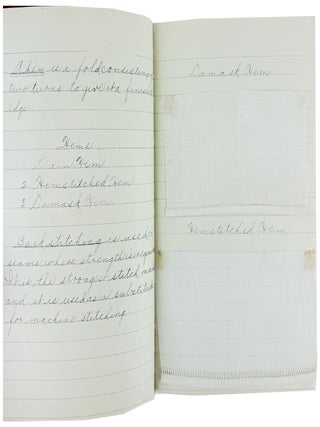 A hem is a fold consisting
two turns to give it a finish
edge.
Hems.
Plain Hem
2. Hemstitched Hem
3. Damask Hem
Back stitching is used
seams where strength is
It is the strongest stitch
and it is used as a substitute
for machine stitching.
Damask Hem
Hemstitched Hem